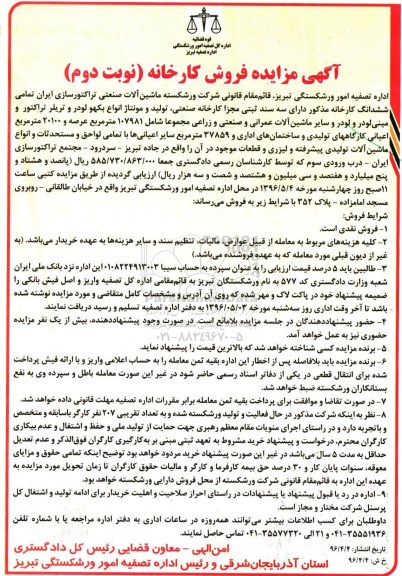 قوه قضائیه
اداره کل تصفیه امور ورشکستگی
اداره تصفیه تبریز
آگهی مزایده فروش کارخانه (نوبت دوم)
اداره تصفیه امور ورشکستگی تبریز، قائم‌مقام قانونی شرکت ورشکسته ماشین‌آلات صنعتی تراکتورسازی ایران تمامی
ششدانگ کارخانه مذکور دارای سه سند ثبتی مجزا کارخانه صنعتی، تولید و مونتاژ انواع بکهو لودر و تریلر تراکتور و
مینی‌لودر و لودر و سایر ماشین آلات عمرانی و صنعتی و زراعی مجموعا شامل ۱۰۷۹۸۱ مترمربع عرصه و ۲۰۱۰۰ مترمربع
اعیانی کارگاههای تولیدی و ساختمان‌های اداری و ۳۷۸۵۹ مترمربع سایر اعیانی‌ها با تمامی لواحق و مستحدثات و انواع
ماشین‌آلات تولیدی پیشرفته و لیزری و قطعات موجود در آن را واقع در جاده تبریز - سردرود - مجتمع تراکتورسازی
ایران - درب ورودی سوم که توسط کارشناسان رسمی دادگستری جمعا ۵۸۵/۷۳۰/۸۶۳/۰۰۰ ریال (پانصد و هشتاد و
پنج میلیارد و هفتصد و سی میلیون و هشتصد و شصت و سه هزار ریال) ارزیابی گردیده از طریق مزایده کتبی ساعت
۱۱صبح روز چهارشنبه مورخه ۱۳۹۶/۵/۴ در محل اداره تصفیه امور ورشکستگی تبریز واقع در خیابان طالقانی - روبروی
مسجد امامزاده - پلاک ۳۵۲ با شرایط زیر به فروش می‌رساند:
شرایط فروش:
۱- فروش نقدی است.
۲- کلیه هزینه‌های مربوط به معامله از قبیل عوارض، مالیات، تنظیم سند و سایر هزینه‌ها به عهده خریدار می‌باشد. (به
غیر از دیون قبلی مورد معامله که به عهده فروشنده می‌باشد.)
۳- طالبین باید ۵ درصد قیمت ارزیابی را به عنوان سپرده به حساب سیبا ۰۱۰۸۲۲۴۹۱۳۰۰۳ این اداره نزد بانک ملی ایران
شعبه وزارت دادگستری کد ۵۷۷ به نام ورشکستگان تبریز به قائم‌مقامی اداره کل تصفیه واریز و اصل فیش بانکی را
ضمیمه پیشنهاد خود در پاکت لاک و مهر شده که روی آن آدرس و مشخصات کامل متقاضی و مورد مزایده نوشته شده
باشد تا آخر وقت اداری روز سه‌شنبه مورخه ۱۳۹۶/۰۵/۰۳ به دفتر اداره تصفیه تسلیم و رسید دریافت نمایند.
۴- حضور پیشنهاددهندگان در جلسه مزایده بلامانع است. در صورت وجود پیشنهاددهنده، بیش از یک نفر مزایده
حضوری نیز به عمل خواهد آمد.
۵- برنده مزایده کسی شناخته خواهد شد که بالاترین قیمت را پیشنهاد نماید.
۶- برنده مزایده باید بلافاصله پس از اخطار این اداره بقیه ثمن معامله را به حساب اعلامی واریز و با ارائه فیش پرداخت
شده برای انتقال قطعی در یکی از دفاتر اسناد رسمی حاضر شود در غیر این صورت معامله باطل و سپرده وی به نفع
بستانکاران ورشکسته ضبط خواهد شد.
۷- در صورت تقاضا و موافقت برای پرداخت بقیه ثمن معامله برابر مقررات اداره تصفیه مهلت قانونی داده خواهد شد.
۸- نظر به اینکه شرکت مذکور در حال فعالیت و تولید ورشکسته شده و به تعداد تقریبی ۲۰۷ نفر کارگر باسابقه و متخصص
و باتجربه دارد و در راستای اجرای منویات مقام معظم رهبری جهت حمایت از تولید ملی و حفظ و اشتغال و عدم بیکاری
کارگران محترم، درخواست و پیشنهاد خرید مشروط به تعهد ثبتی مبنی بر به‌کارگیری کارگران فوق‌الذکر و عدم تعدیل
حداقل به مدت ۵ سال می‌باشد در غیر این صورت پیشنهاد خرید مردود خواهد بود توضیح اینکه تمامی حقوق و مزایای
معوقه، سنوات پایان کار و ۳۰ درصد حق بیمه کارفرما و کارگر و مالیات حقوق کارگران تا زمان تحویل مورد مزایده به
عهده این اداره به قائم‌مقام قانونی شرکت ورشکسته از محل فروش دارایی ورشکسته خواهد بود.
۹- اداره در رد یا قبول پیشنهاد یا پیشنهادات در راستای احراز صلاحیت و اهلیت خریدار برای ادامه تولید و اشتغال کل
پرسنل شرکت مختار و مجاز است.
داوطلبان برای کسب اطلاعات بیشتر می‌توانند همه‌روزه در ساعات اداری به دفتر اداره مراجعه یا با شماره تلفن
۰۴۱-۳۵۵۵۱۹۳۶ و ۲۱ الی ۰۴۱-۳۵۵۷۷۳۲۰ تماس حاصل نمایند.
تاریخ انتشار: ۹۶/۴/۴
خ ش: ۹۶/۴/۴
امن‌الهی - معاون قضایی رئیس کل دادگستری
استان آذربایجان‌شرقی و رئیس اداره تصفیه امور ورشکستگی تبریز
۰۲۱-۸۸۳۴۹۶۷۰-۵